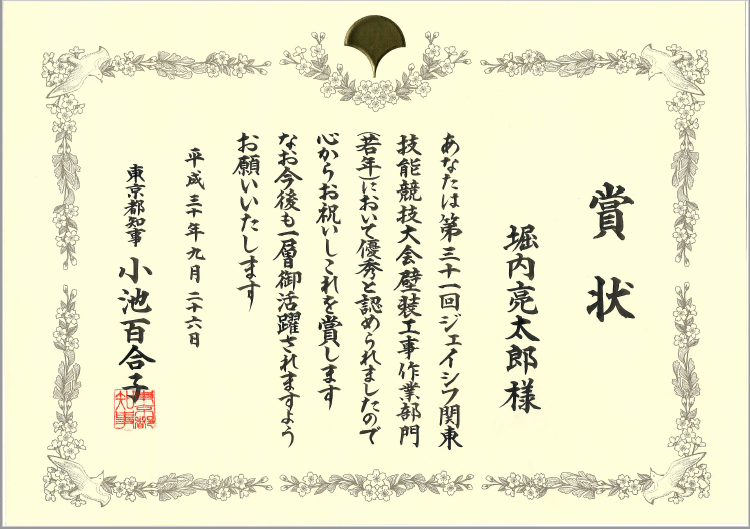 賞状
堀内亮太郎様
あなたは第三十一回ジェイシフ関東
技能競技大会壁装工事作業部門
(若年)において優秀と認められましたので
心からお祝いしこれを賞します
なお今後も一層御活躍されますよう
お願いいたします
平成三十年九月二十六日
東京都知事 小池百合子
東京都
知事